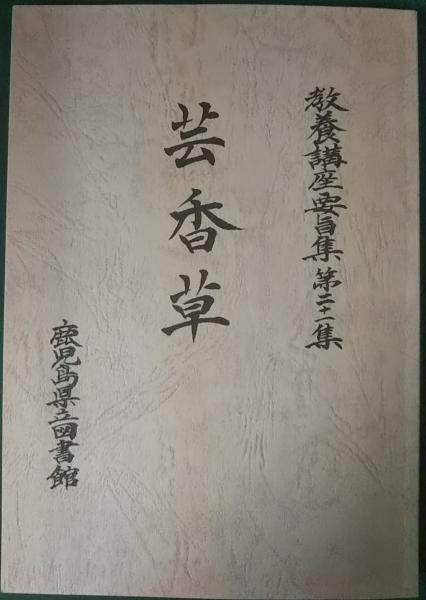 教養講座要旨集 第二十一集
芸香草
鹿児島県立図書館